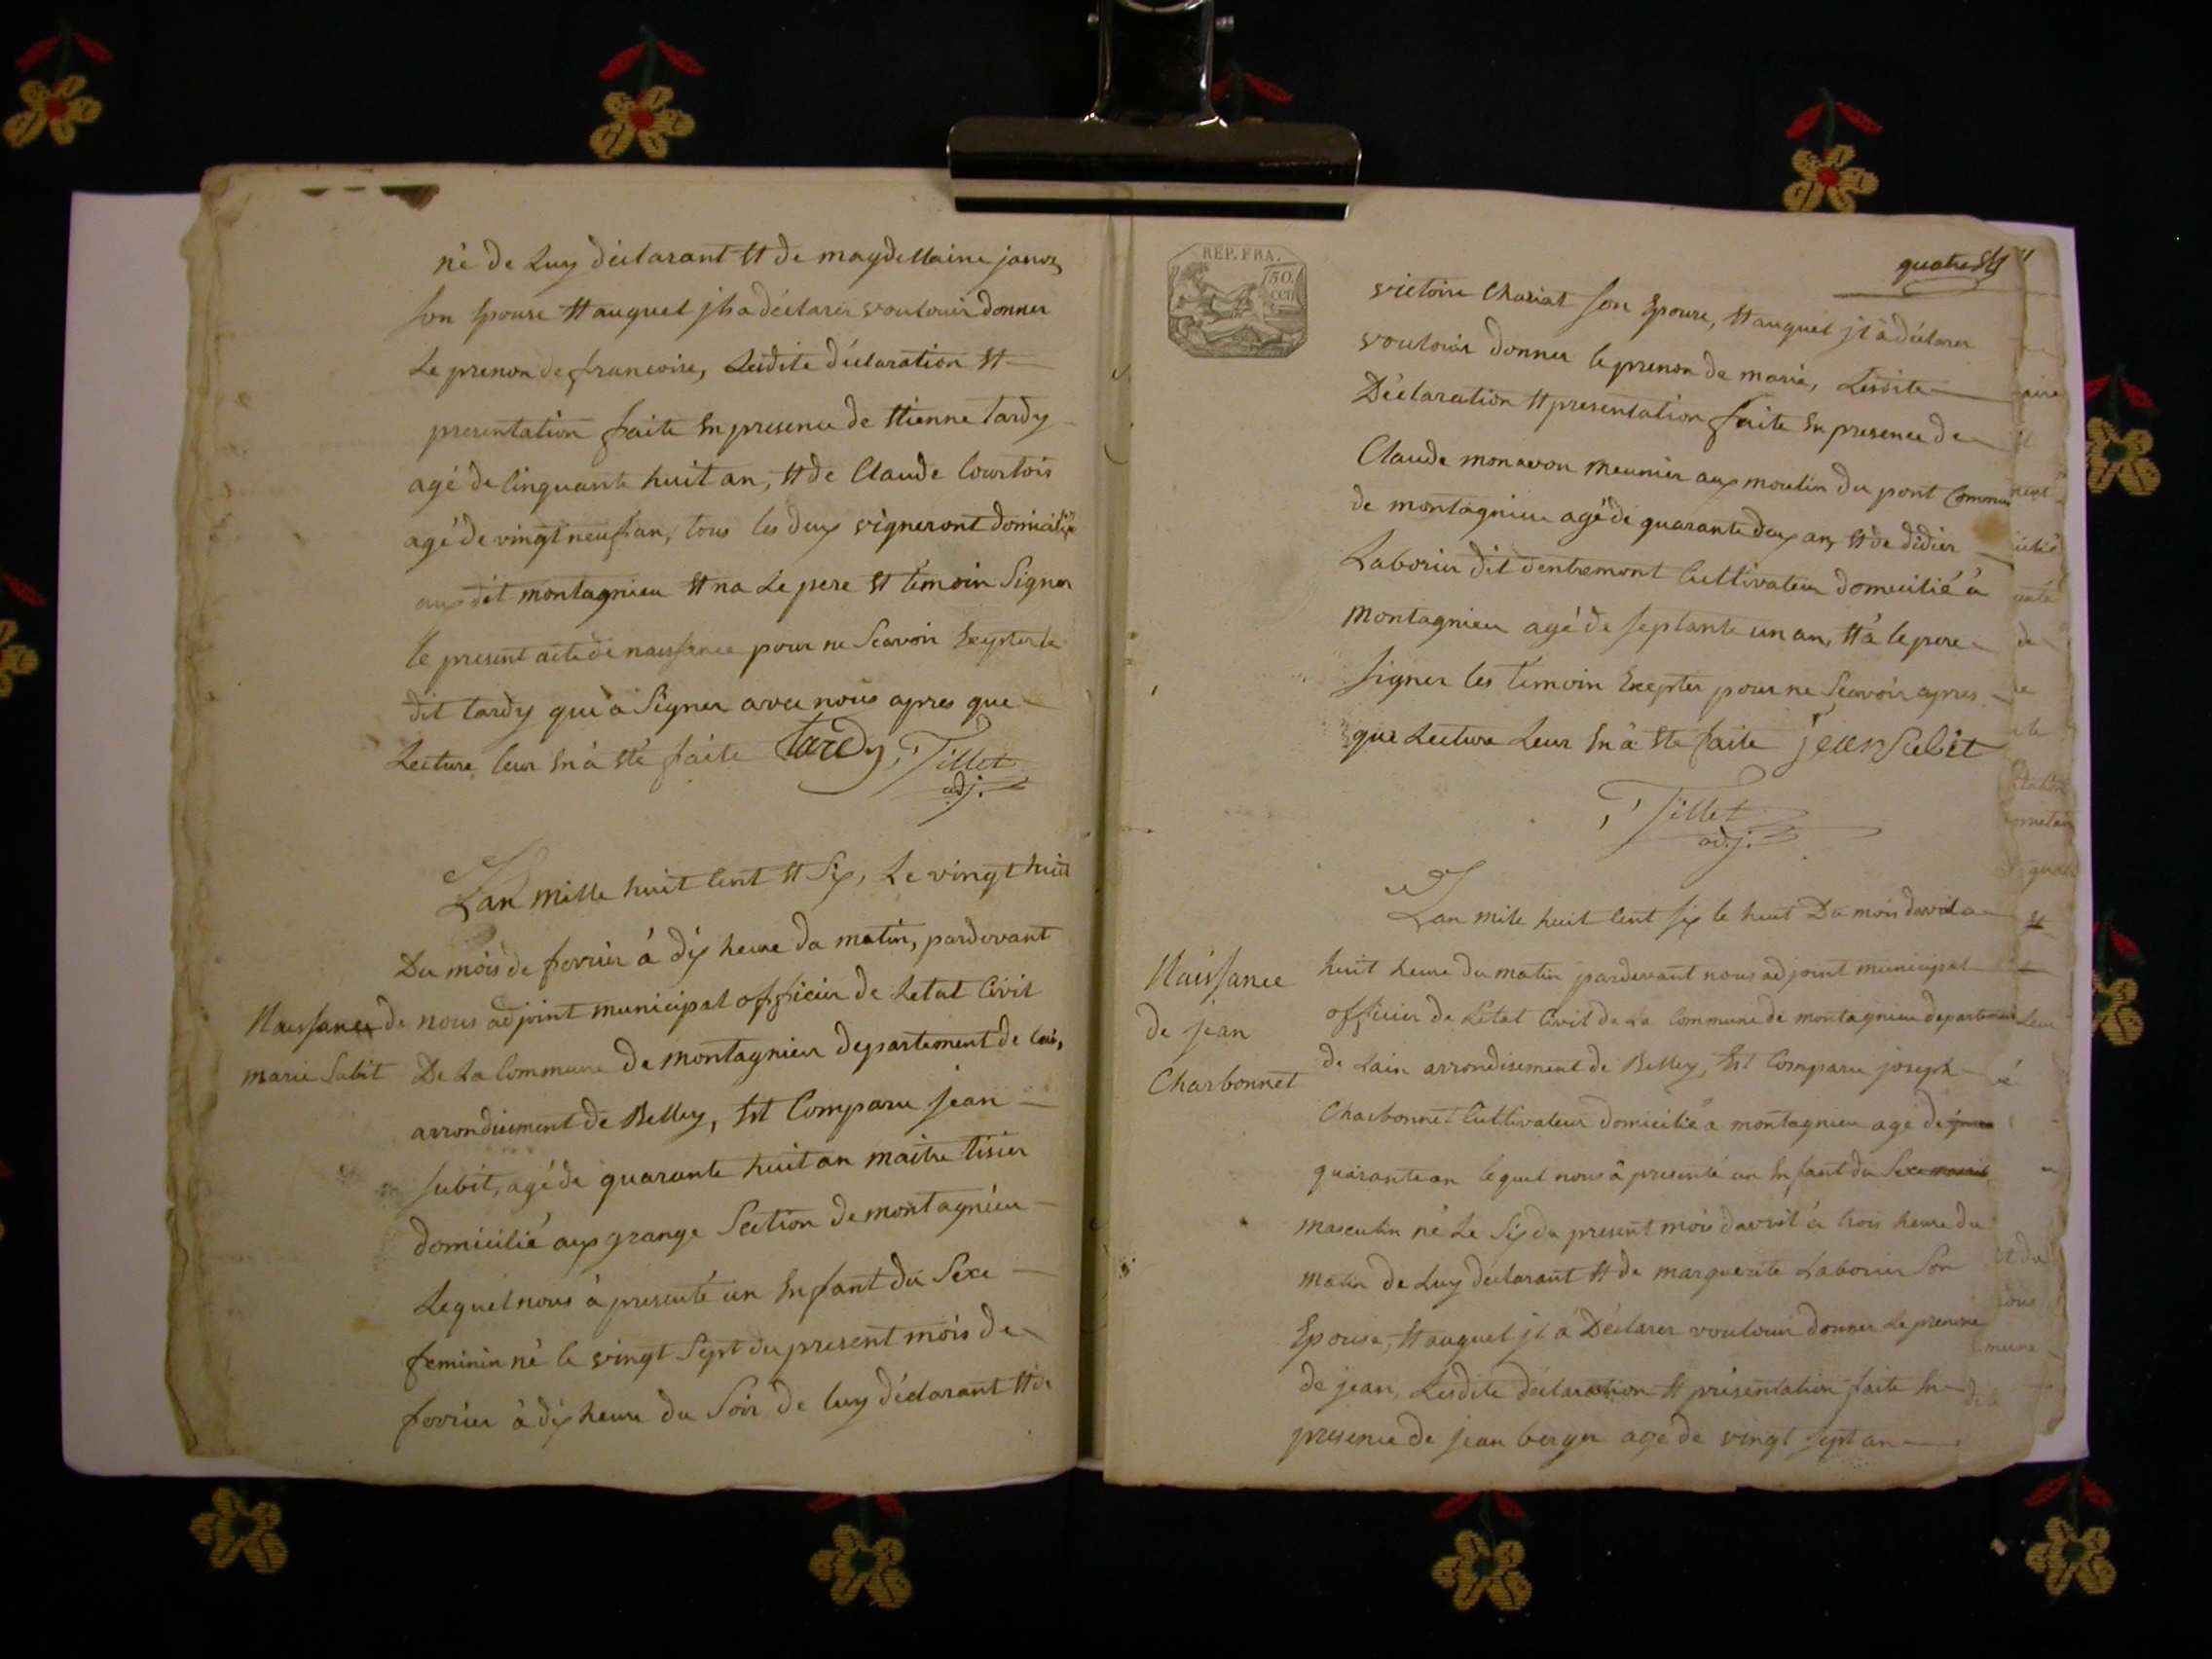 né de Luy déclarant et de magdellaine janoz
son Epouse et auquel jl a déclarer vouloir donner
Le prenon de francoise, Lesdite déclaration et
presentation faite En presence de Etienne tardy
agé de Cinquante huit an, et de Claude Courtois
agé de vingt neuf an, tous les deux vigneront domicilié
aux dit montagnieu et na Le pere et témoin Signer
le present acte de naissance pour ne Scavoir Excepter le
dit tardy qui à Signer avec nous apres que
Lecture leur En à Eté faite tardy Tillet
adj.
Lan mille huit Cent et Six, Le vingt huit
Du mois de fevrier à dix heure du matin, pardevant
Naissance de
marie Subit
nous adjoint municipal officier de Letat Civil
De La Commune de montagnieu departement de Lain,
arrondisement de Belley, Est Comparu jean
subit, agé de quarante huit an maitre tisier
domicilié aux grange Section de montagnieu
Lequel nous à presenté un Enfant du Sexe
feminin né le vingt Sept du present mois de
fevrier à dix heure du Soir de luy déclarant et de
REP. FRA.
50.
CEN
victoire Chariat son Epouse, et auquel jl à déclarer
vouloiar donner le prenon de marie, Lesdite
Déclaration et presentation faite En presence de
Claude monavon meunier aux moulin du pont Commun
de montagnieu agé de quarante deux an, et de didier
Laborier dit dentremont Cultivateur domicilié à
montagnieu agé de septante un an, et à le pere
signer les temoin Excepter pour ne Scavoir apres
que Lecture Leur En à Ete faite jean Subit
Tillet
adj.
Lan mile huit Cent six le huit Du mois davril a
Naissance
de jean
Charbonnet
huit heure du matin pardevant nous adjoint municipal
officier de Letat Civil de La Commune de montagnieu departement
de Lain arrondisement de Belley, Est Comparu joseph
Charbonnet Cultivateur domicilié a montagnieu agé de
quarante an lequel nous à presenté un Enfant du Sexe
masculin né Le Six du present mois davril à trois heure du
matin de Luy déclarant et de marguerite Laborier Son
Epouse, et auquel jl à Déclarer vouloir donner Le prenome
de jean, Lesdite déclaration et présentation faite En
presence de jean berger agé de vingt sept an